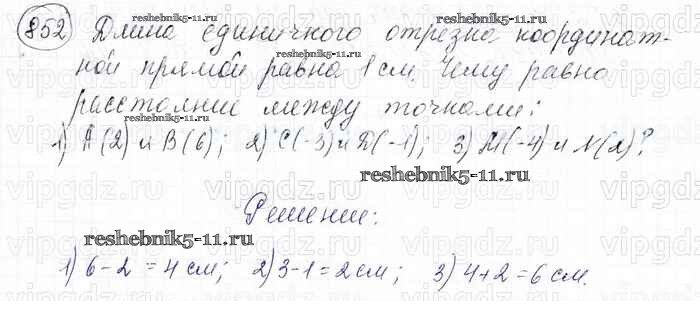 852 Длина единичного отрезка координат-
ной прямой равна 1 см. Чему равно
расстояние между точками:
1) A(2) и B(6); 2) C(-3) и D(-1); 3) M(-4) и N(2)?
Решение:
1) 6-2=4 см; 2) 3-1=2 см; 3) 4+2=6 см.
reshebnik5-11.ru
reshebnik5-11.ru
reshebnik5-11.ru
reshebnik5-11.ru
vipgdz.ru